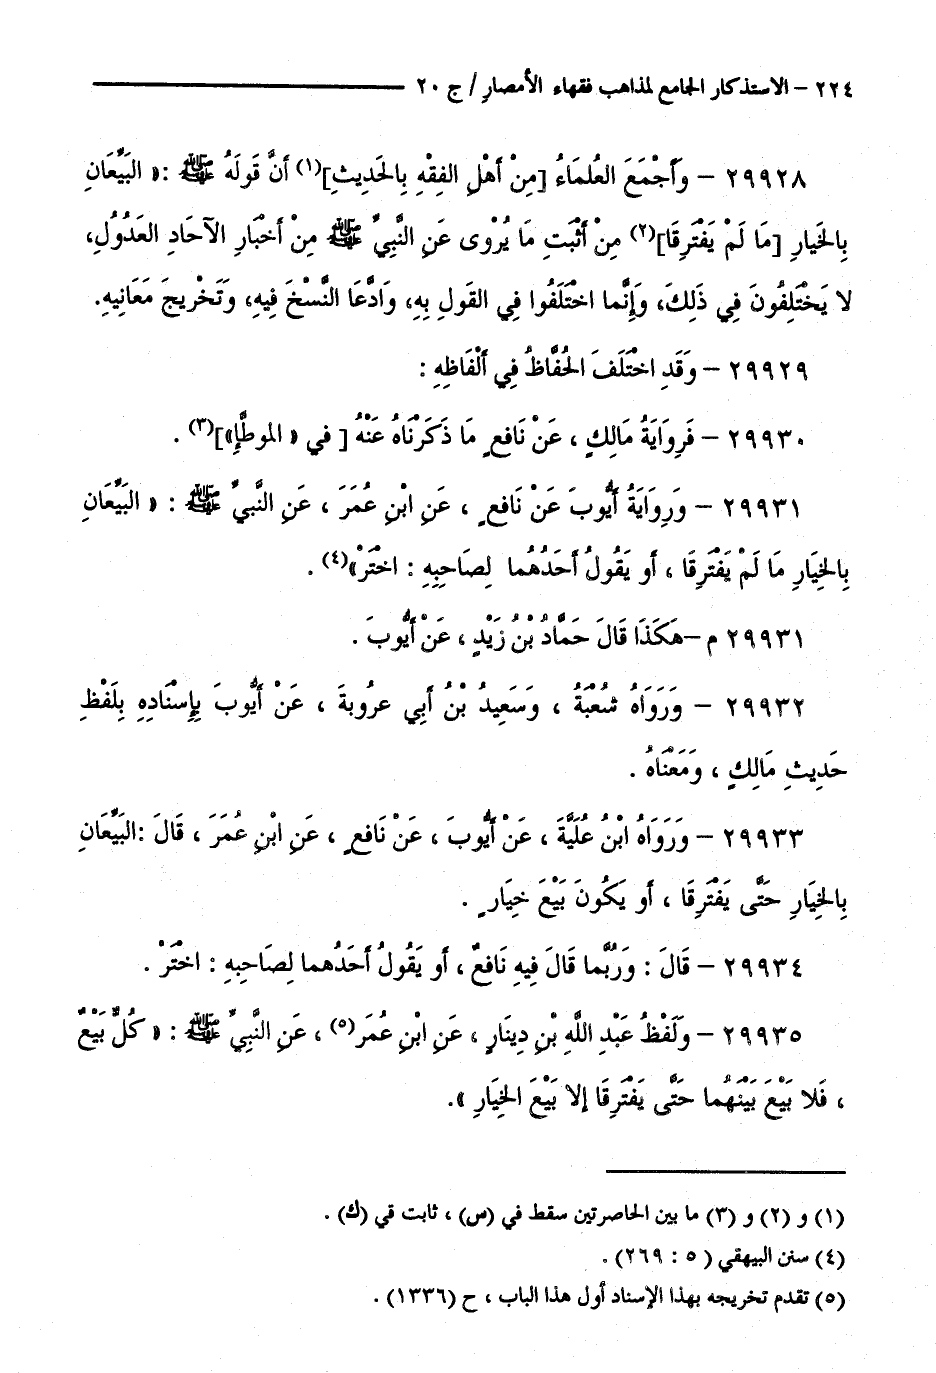 ٢٢٤ – الاستذكار الجامع لمذاهب فقهاء الأمصار / ج ٢٠
٢٩٩٢٨ – وَأَجْمَعَ العُلَمَاءُ [مِنْ أَهْلِ الفِقْهِ بِالحَدِيثِ](١) أَنَّ قَولَهُ ﷺ :« البَيِّعَانِ
بِالخِيَارِ [مَا لَمْ يَفْتَرِقَا](٢) مِنْ أَثْبَتِ مَا يُرْوى عَنِ النَّبِيِّ ﷺ مِنْ أَخْبَارِ الآحَادِ العَدُولِ،
لا يَخْتَلِفُونَ فِي ذَلِكَ، وَإِنَّما اخْتَلَفُوا فِي القَولِ بِهِ، وَادَّعَا النَّسْخَ فِيهِ، وَتَخْرِيجَ مَعَانِيهِ.
٢٩٩٢٩ – وَقَدِ اخْتَلَفَ الحُفَّاظُ فِي أَلْفَاظِهِ :
٢٩٩٣٠ – فَرِوَايَةُ مَالِكٍ ، عَنْ نَافِعٍ مَا ذَكَرْنَاهُ عَنْهُ [ في « الموطَّإِ»](٣) .
٢٩٩٣١ – وَرِوَايَةُ أَيُّوبَ عَنْ نَافِعٍ ، عَنِ ابْنِ عُمَرَ ، عَنِ النَّبيِّ ﷺ : « البَيِّعَانِ
بِالخِيَارِ مَا لَمْ يَفْتَرِقَا ، أَو يَقُولُ أَحَدُهُما لِصَاحِبِهِ : اخْتَرْ»(٤) .
٢٩٩٣١ م –هَكَذَا قَالَ حَمَّادُ بْنُ زَيْدٍ ، عَنْ أَيُّوبَ .
٢٩٩٣٢ – وَرَوَاهُ شُعْبَةُ ، وَسَعِيدُ بْنُ أَبِي عروبةَ ، عَنْ أَيُّوبَ بِإِسْنَادِهِ بِلَفْظِ
حَدِيثِ مَالِكٍ ، وَمَعْنَاهُ .
٢٩٩٣٣ – وَرَوَاهُ ابْنُ عُلَيَّةَ ، عَنْ أَيُّوبَ ، عَنْ نَافِعٍ ، عَنِ ابْنِ عُمَرَ ، قَالَ :البَيِّعَانِ
بِالخِيَارِ حَتَّى يَفْتَرِقَا ، أَو يَكُونَ بَيْعَ خِيَارٍ .
٢٩٩٣٤ – قَالَ : وَرُبَّما قَالَ فِيهِ نَافِعٌ ، أَو يَقُولُ أَحَدُهما لِصَاحِبِهِ : اخْتَرْ .
٢٩٩٣٥ – وَلَفْظُ عَبْدِ اللَّهِ بْنِ دِينَارٍ ، عَنِ ابْنِ عُمَر(٥) ، عَنِ النَّبِيِّ ﷺ : « كُلُّ بَيْعٌ
، فَلا بَيْعَ بَيْنَهُما حَتَّى يَفْتَرِقَا إلا بَيْعَ الخِيَارِ ».
(١) و (٢) و (٣) ما بين الحاصرتين سقط في (س) ، ثابت قي (ك) .
(٤) سنن البيهقي ( ٥ : ٢٦٩) .
(٥) تقدم تخريجه بهذا الإسناد أول هذا الباب ، ح (١٣٣٦) .